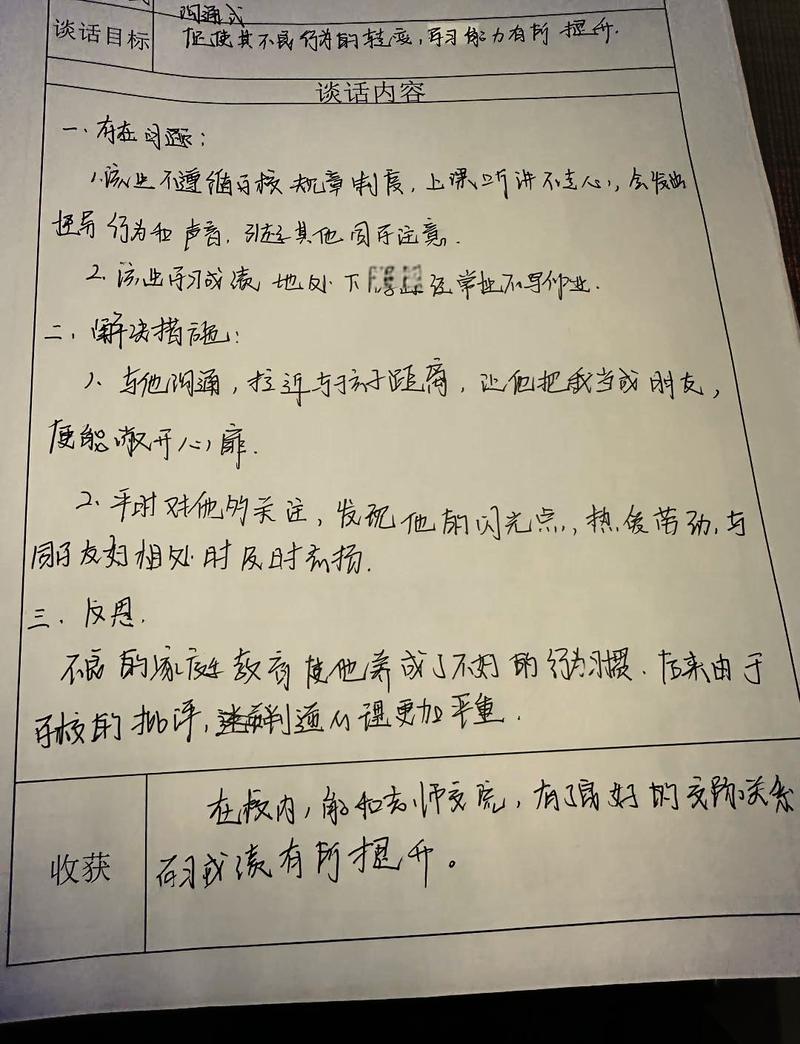 沟通式
谈话目标
促使其不良行为的转变,学习能力有所提升.
谈话内容
一、存在问题:
1.该生不遵循学校规章制度,上课听讲不走心,会发出
怪异行为和声音,引起其他同学注意.
2.该生学习成绩 地处下 经常性不写作业.
二、解决措施:
1、与他沟通,拉近与孩子距离,让他把我当成朋友,
便能敞开心扉.
2、平时对他的关注,发现他的闪光点,热爱劳动,与
同学友好相处时及时表扬.
三、反思.
不良的家庭教育使他养成了不好的行为习惯.后来由于
学校的批评,更加严重.
收获
在校内,能和老师交流,有了良好的交际关系
学习成绩有所提升。